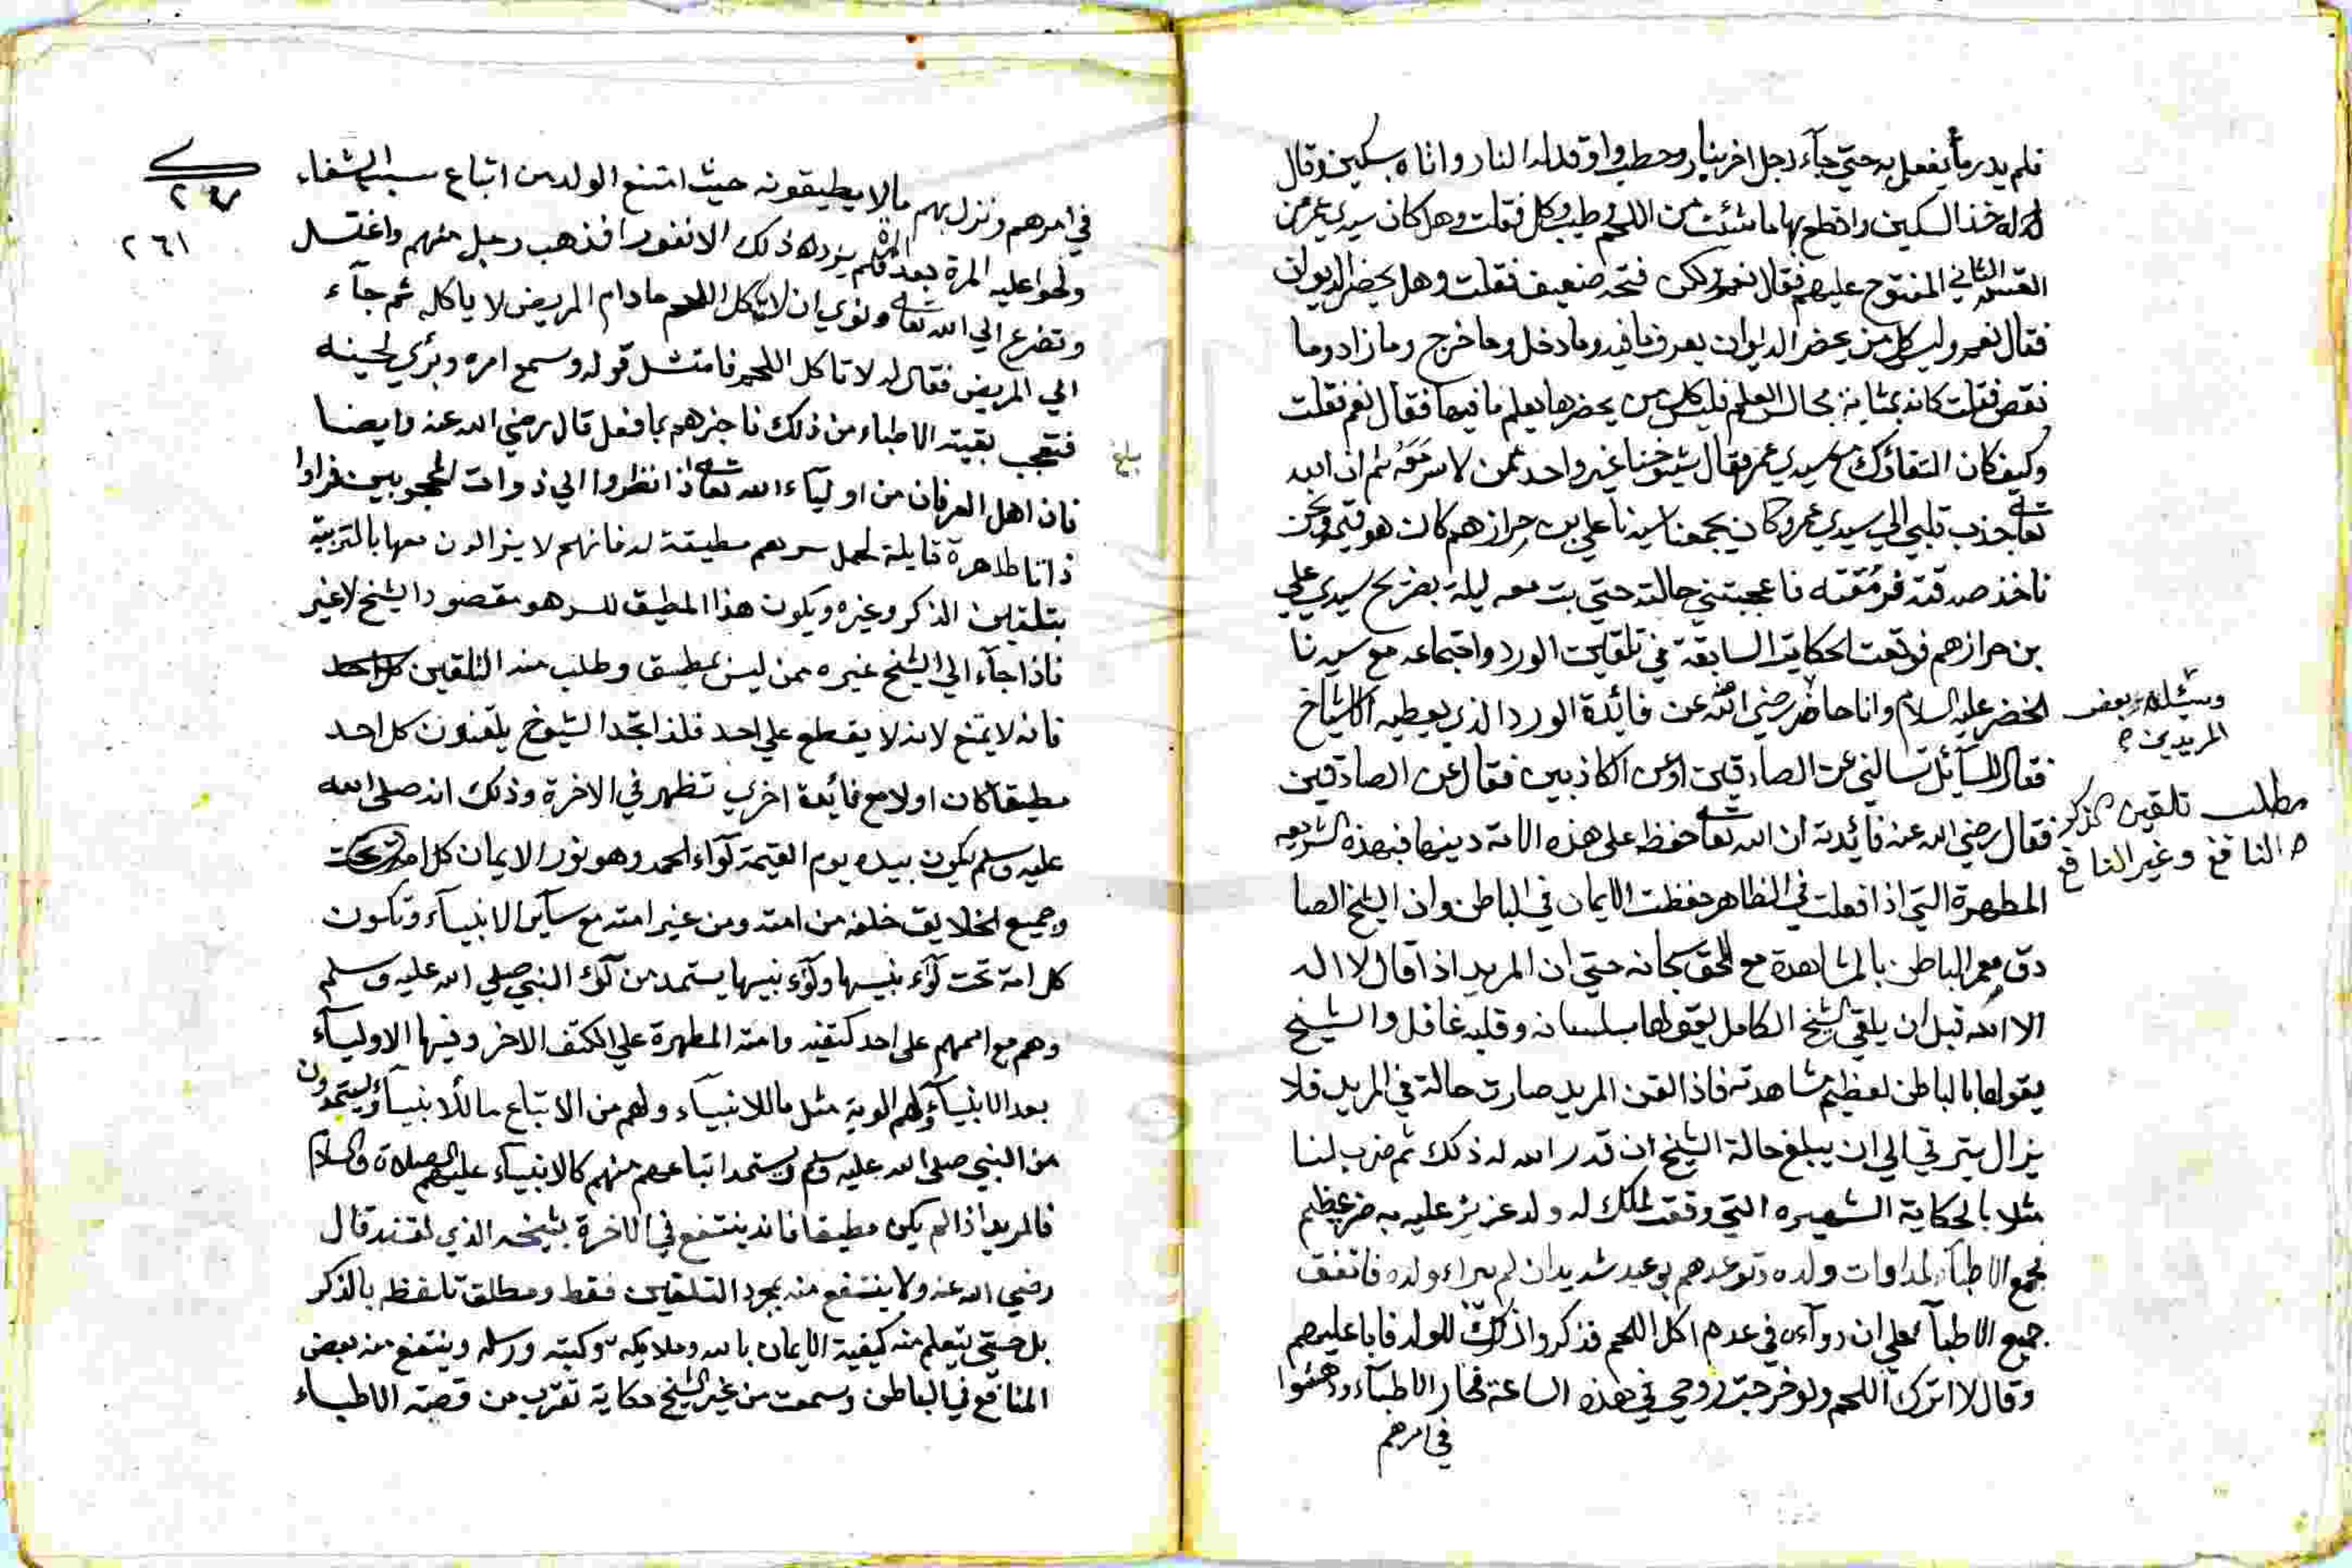 فلم يدر ما يفعل به حتي جآء رجل اخر بنار وحطب واوقد له النار واتاه بسكين وقال
له خذ السكين واقطع بها ما شئت من اللحم وطيب وكل فقلت وهل كان سيدي عمر من
القسم الثاني المفتوح عليهم فقال نعم ولكن فتحه ضعيف فقلت وهل يحضر الديوان
فقال نعم وليس كل من يحضر الديوان يعرف ما فيه وما دخل وما خرج وما زاد وما
نقص فقلت كانه بمثابة مجالس العلم فليس كل من يحضرها يعلم ما فيها فقال نعم فقلت
وكيف كان مع سيدي عمر فقال شيوخنا غير واحد ثم ان الله
تعالى جذب قلبي الي سيدي عمر وكان يجمعنا سيدنا علي بن حرازهم كان هو قيمه ونحن
ناخذ صدقته فرمقته فاعجبتني حالته حتي بت معه ليلة بضريح سيدي علي
بن حرازهم فوقعت الحكاية السابقة في تلقين الورد واجتماعه مع سيدنا
الخضر عليه السلام وانا حاضر رضي الله عن فائدة الورد الذي يعطيه الاشياخ
وسئله بعض
المريدين
فقال للسآئل تسالني عن الصادقين او عن الكاذبين فقال عن الصادقين
مطلب تلقين الذكر
النافع وغير النافع
فقال رضي الله عنه فائدته ان الله تعالى حفظ على هذه الامة دينها فبهذه الشريعه
المطهرة التي اذا فعلت في الظاهر حفظت الايمان في الباطن وان الشيخ الصا
دق معمر الباطن بالمشاهدة مع الحق سبحانه حتي ان المريد اذا قال لا اله
الا الله قبل ان يلقي الشيخ الكامل يقولها بلسانه وقلبه غافل والشيخ
يقولها بالباطن لعظيم مشاهدته فاذا لقن المريد صارت حالة في المريد فلا
يزال يترقي الي ان يبلغ حالة الشيخ ان قدر الله له ذلك ثم ضرب لنا
مثلا بالحكاية الشهيره التي وقعت لملك له ولد عزيز عليه به ضر عظيم
فجمع الاطبآء لمداوات ولده وتوعدهم بوعيد شديد ان لم يبراء ولده فاتفق
جميع الاطبآء علي ان دوآءه في عدم اكل اللحم فذكروا ذلك للولد فابا عليهم
وقال لا اترك اللحم ولو خرجت روحي في هذه الساعة فحار الاطبآء ودهشوا
في امرهم
٢٦١
في امرهم ونزل بهم ما لا يطيقونه حيث امتنع الولد من اتباع سبب الشفاء
والحوا عليه المرة بعد المرة فلم يزده ذلك الا نفورا فذهب رجل منهم واغتسل
وتضرع الي الله تعالى ونوي ان لا ياكل اللحم ما دام المريض لا ياكله ثم جآء
الي المريض فقال له لا تاكل اللحم فامتثل قوله وسمع امره وبرئ لحينه
فتعجب بقية الاطباء من ذلك فاخبرهم بما فعل قال رضي الله عنه وايضا
بلغ
فان اهل العرفان من اوليآء الله تعالى اذا نظروا الي ذوات المحجوبين فراوا
ذاتا طاهرة قابلة لحمل سرهم مطيقة له فانهم لا يزالون معها بالتربية
بتلقين الذكر وغيره ويكون هذا المطيق للسر هو مقصود الشيخ لا غير
فاذا جآء الي الشيخ غيره ممن ليس بمطيق وطلب منه التلقين
فانه لا يمنع لانه لا يقطع علي احد فلذا تجد الشيوخ يلقنون كل احد
مطيقا كان او لا مع فائدة اخري تظهر في الاخرة وذلك انه صلى الله
عليه وسلم يكون بيده يوم القيمة لوآء الحمد وهو نور الايمان
وجميع الخلايق خلفه من امته ومن غير امته مع سآير الانبيآء وتكون
كل امة تحت لوآء نبيها ولوآء نبيها يستمد من لوآء النبي صلي الله عليه وسلم
وهم مع اممهم على احد كتفيه وامته المطهرة علي الكتف الاخر وفيها الاوليآء
بعدد الانبيآء ولهم الوية مثل ما للانبيآء ولهم من الاتباع ما للانبيآء ويستمدون
من النبي صلى الله عليه وسلم ويستمد اتباعهم منهم كالانبيآء عليهم الصلاة والسلام
فالمريد اذا لم يكن مطيقا فانه ينتفع في الاخرة بشيخه الذي لقنه قال
رضي الله عنه ولا ينتفع منه بمجرد التلقين فقط ومطلق تلفظه بالذكر
بل حتي يتعلم منه كيفية الايمان بالله وملايكته وكتبه ورسله وينتفع منه بعض
المنافع في الباطن وسمعت من غير الشيخ حكاية تقرب من قصة الاطباء